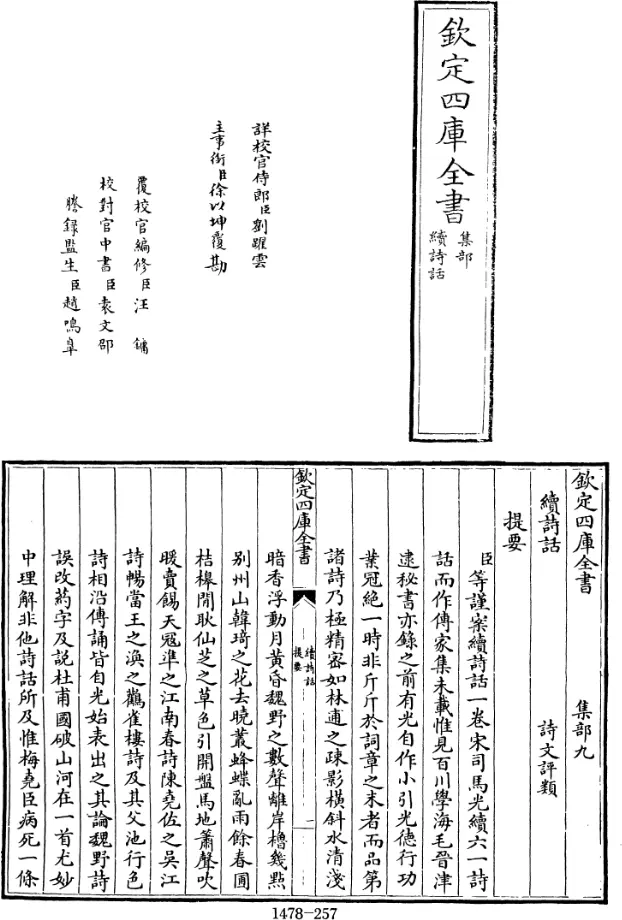 欽定四庫全書
集部
續詩話
詳校官侍郎臣劉躍雲
主事銜臣徐以坤覆勘
覆校官編修臣汪鏞
校對官中書臣袁文邵
謄錄監生臣趙鳴皐
欽定四庫全書 集部九
續詩話 詩文評類
提要
臣等謹案續詩話一卷宋司馬光續六一詩
話而作傳家集未載惟見百川學海毛晉津
逮秘書亦錄之前有光自作小引光德行功
業冠絶一時非斤斤於詞章之末者而品第
諸詩乃極精密如林逋之疎影橫斜水清淺
欽定四庫全書
續詩話
提要
一
暗香浮動月黃昏魏野之數聲離岸櫓幾㸃
别州山韓琦之花去曉叢蜂蝶亂雨餘春圃
桔橰閒耿仙芝之草色引開盤馬地簫聲吹
暖賣錫天冦準之江南春詩陳堯佐之吳江
詩暢當王之渙之鸛雀樓詩及其父池行色
詩相沿傳誦皆自光始表出之其論魏野詩
誤改葯字及説杜甫國破山河在一首尤妙
中理解非他詩話所及惟梅堯臣病死一條
1478-257